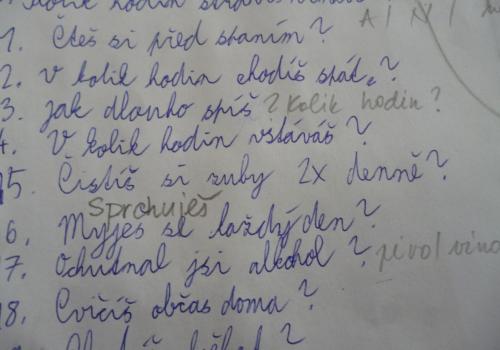 Kolik hodin
1. Čteš si před spaním? A / N /
2. V kolik hodin chodíš spát?
3. Jak dlouho spíš? Kolik hodin?
4. V kolik hodin vstáváš?
15. Čistíš si zuby 2x denně?
Sprchuješ
6. Myješ se každý den?
17. Ochutnal jsi alkohol? pivo / víno
18. Cvičíš občas doma?